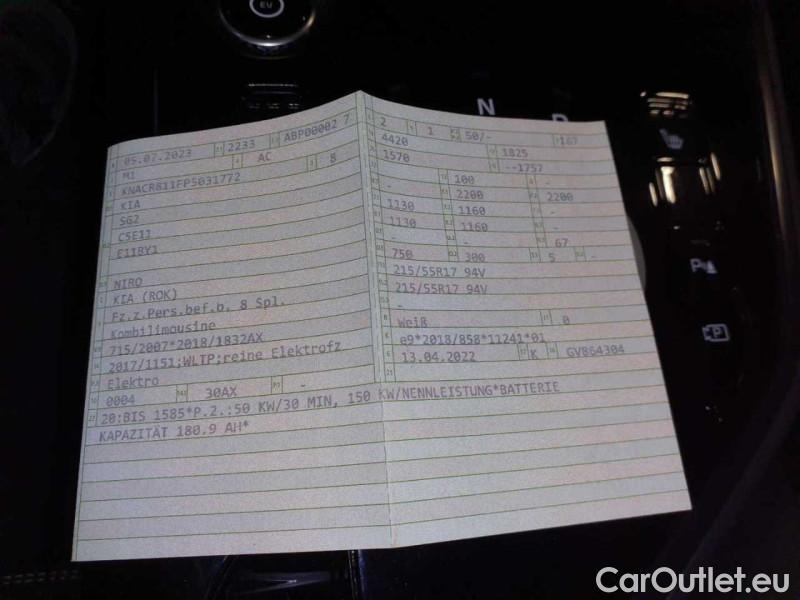 EU
N
05.07.2023 2233 ABP00002 7
M1 AC B
KNACR811FP5031772
KIA
SG2
C5E11
E11BY1
NIRO
KIA (ROK)
Fz.z.Pers.bef.b. 8 Spl.
Kombilimousine
715/2007*2018/1832AX
2017/1151;WLTP;reine Elektrofz
Elektro
0004 30AX -
20:BIS 1585*P.2.:50 KW/30 MIN, 150 KW/NENNLEISTUNG*BATTERIE
KAPAZITÄT 180.9 AH*
2 1 50/- 167
4420 1825
1570 --1757
- 100 -
- 2200 2200
1130 1160 -
1130 1160 -
- - 67
750 300 5 -
215/55R17 94V
215/55R17 94V
-
Weiß 0
e9*2018/858*11241*01
13.04.2022 K GV864304
P
CarOutlet.eu